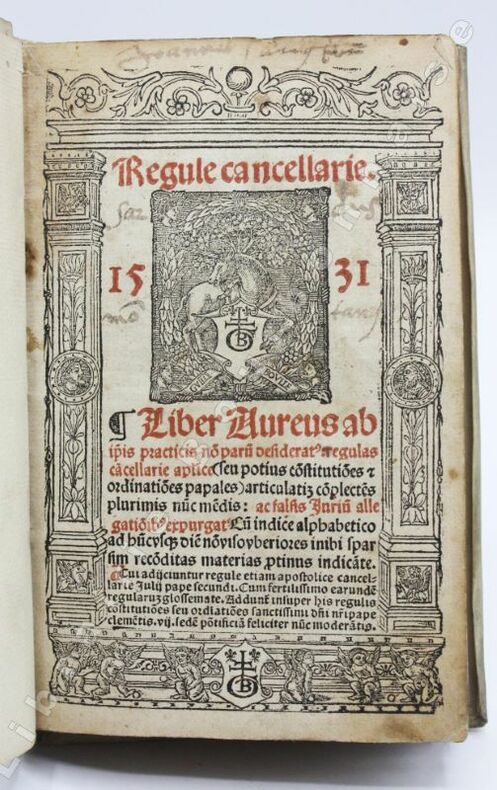 Regule cancellarie.
15 31
¶ Liber Aureus ab
ip̄is practicis nō parū desideratꝰ: regulas
cācellarie aplice (seu potius cōstitutiōes ⁊
ordinatiōes papales) articulatiʒ cōplectēs
plurimis nūc mēdis: ac falsis Juriū alle
gatiōibꝰ expurgatꝰ Cū indice alphabetico
ad hūcusqʒ diē nō viso vberiores inibi spar
sim recōditas materias ꝓtinus indicāte.
¶ Cui adijciuntur regule etiam apostolice cancel-
larie Julij pape secundi. Cum fertilissimo earundē
regularuʒ glossemate. Addunt insuper his regulis
cōstitutiōes seu ordiatiōes sanctissimi dn̄i nr̄i pape
clemētis. vij. sedē pōtificiā feliciter nūc moderātis.
GB